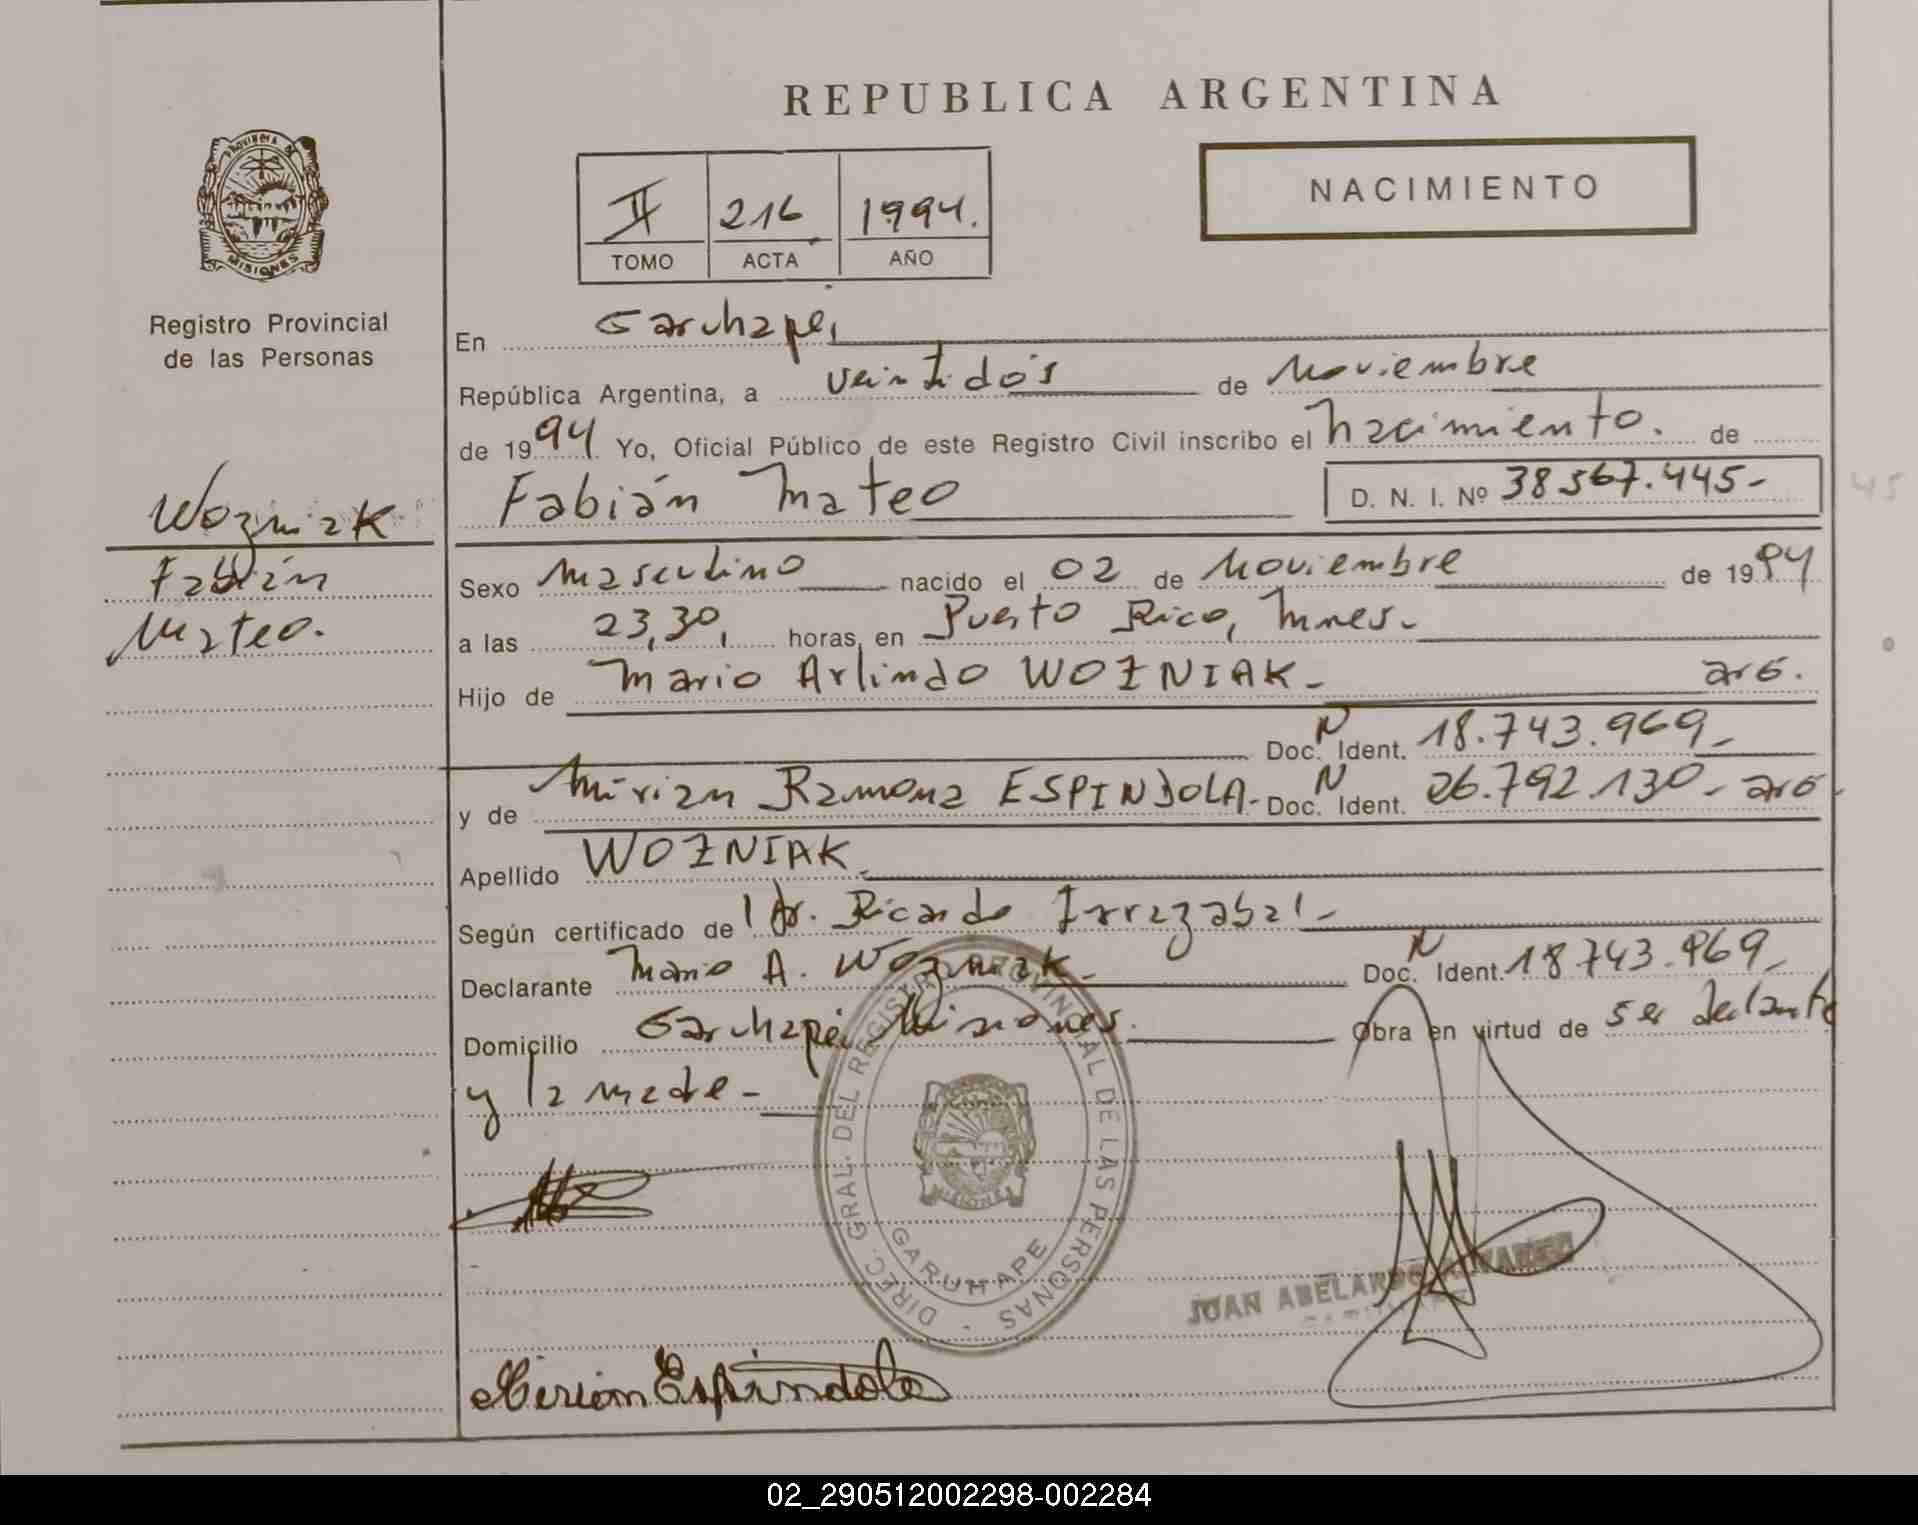 REPUBLICA ARGENTINA
NACIMIENTO
II 216 1994.
TOMO ACTA AÑO
PROVINCIA DE MISIONES
Registro Provincial
de las Personas
Wozniak
Fabián
Mateo.
En Garuhapé,
República Argentina, a veintidós de Noviembre
de 1994 Yo, Oficial Público de este Registro Civil inscribo el nacimiento. de
Fabián Mateo D. N. I. Nº 38.567.445-
Sexo Masculino nacido el 02 de Noviembre de 1994
a las 23,30, horas, en Puerto Rico, Mnes.-
Hijo de Mario Arlindo WOZNIAK- arg.
Doc. N Ident. 18.743.969-
y de Mirian Ramona ESPINDOLA- Doc. N Ident. 26.792.130- arg.
Apellido WOZNIAK-
Según certificado de Dr. Ricardo Irrazabal-
Declarante Mario A. Wozniak- Doc. N Ident. 18.743.969-
Domicilio Garuhapé Misiones. Obra en virtud de ser declarante
y la madre-
DIREC. GRAL. DEL REGISTRO PROVINCIAL DE LAS PERSONAS -
GARUHAPE
JUAN ABELARDO
Mirian Espindola
02_290512002298-002284